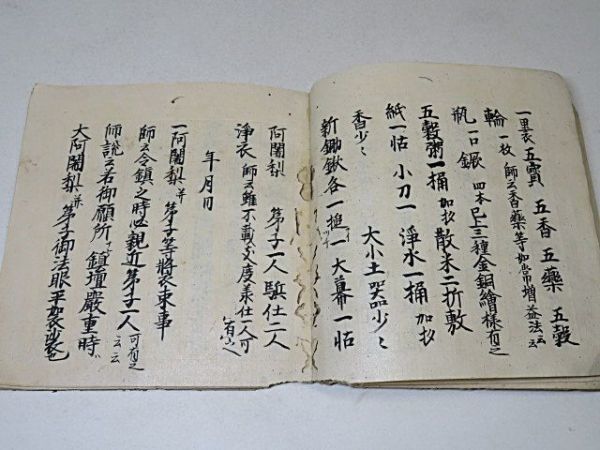 一 裹衣 五寳 五香 五藥 五穀
輪一枚 師云香藥等如常増益法云云
瓶一口 鋠四本 已上三種金銅繪樣有之
五穀粥一桶 加杓 散米二折敷
紙一帖 小刀一 淨水一桶 加杓
香少々 大小土器少々
新鋤鍬各一 挺一 大幕一帖
阿闍梨 弟子一人 駈仕二人
淨衣 師云雖不載支度承仕一人可
年月日
一阿闍梨并弟子等將衣束事
師云令鎮之時必親近弟子一人可有之
師説云若御願所ナト鎮壇嚴重時云云
大阿闍梨并弟子御法眼平袈裟